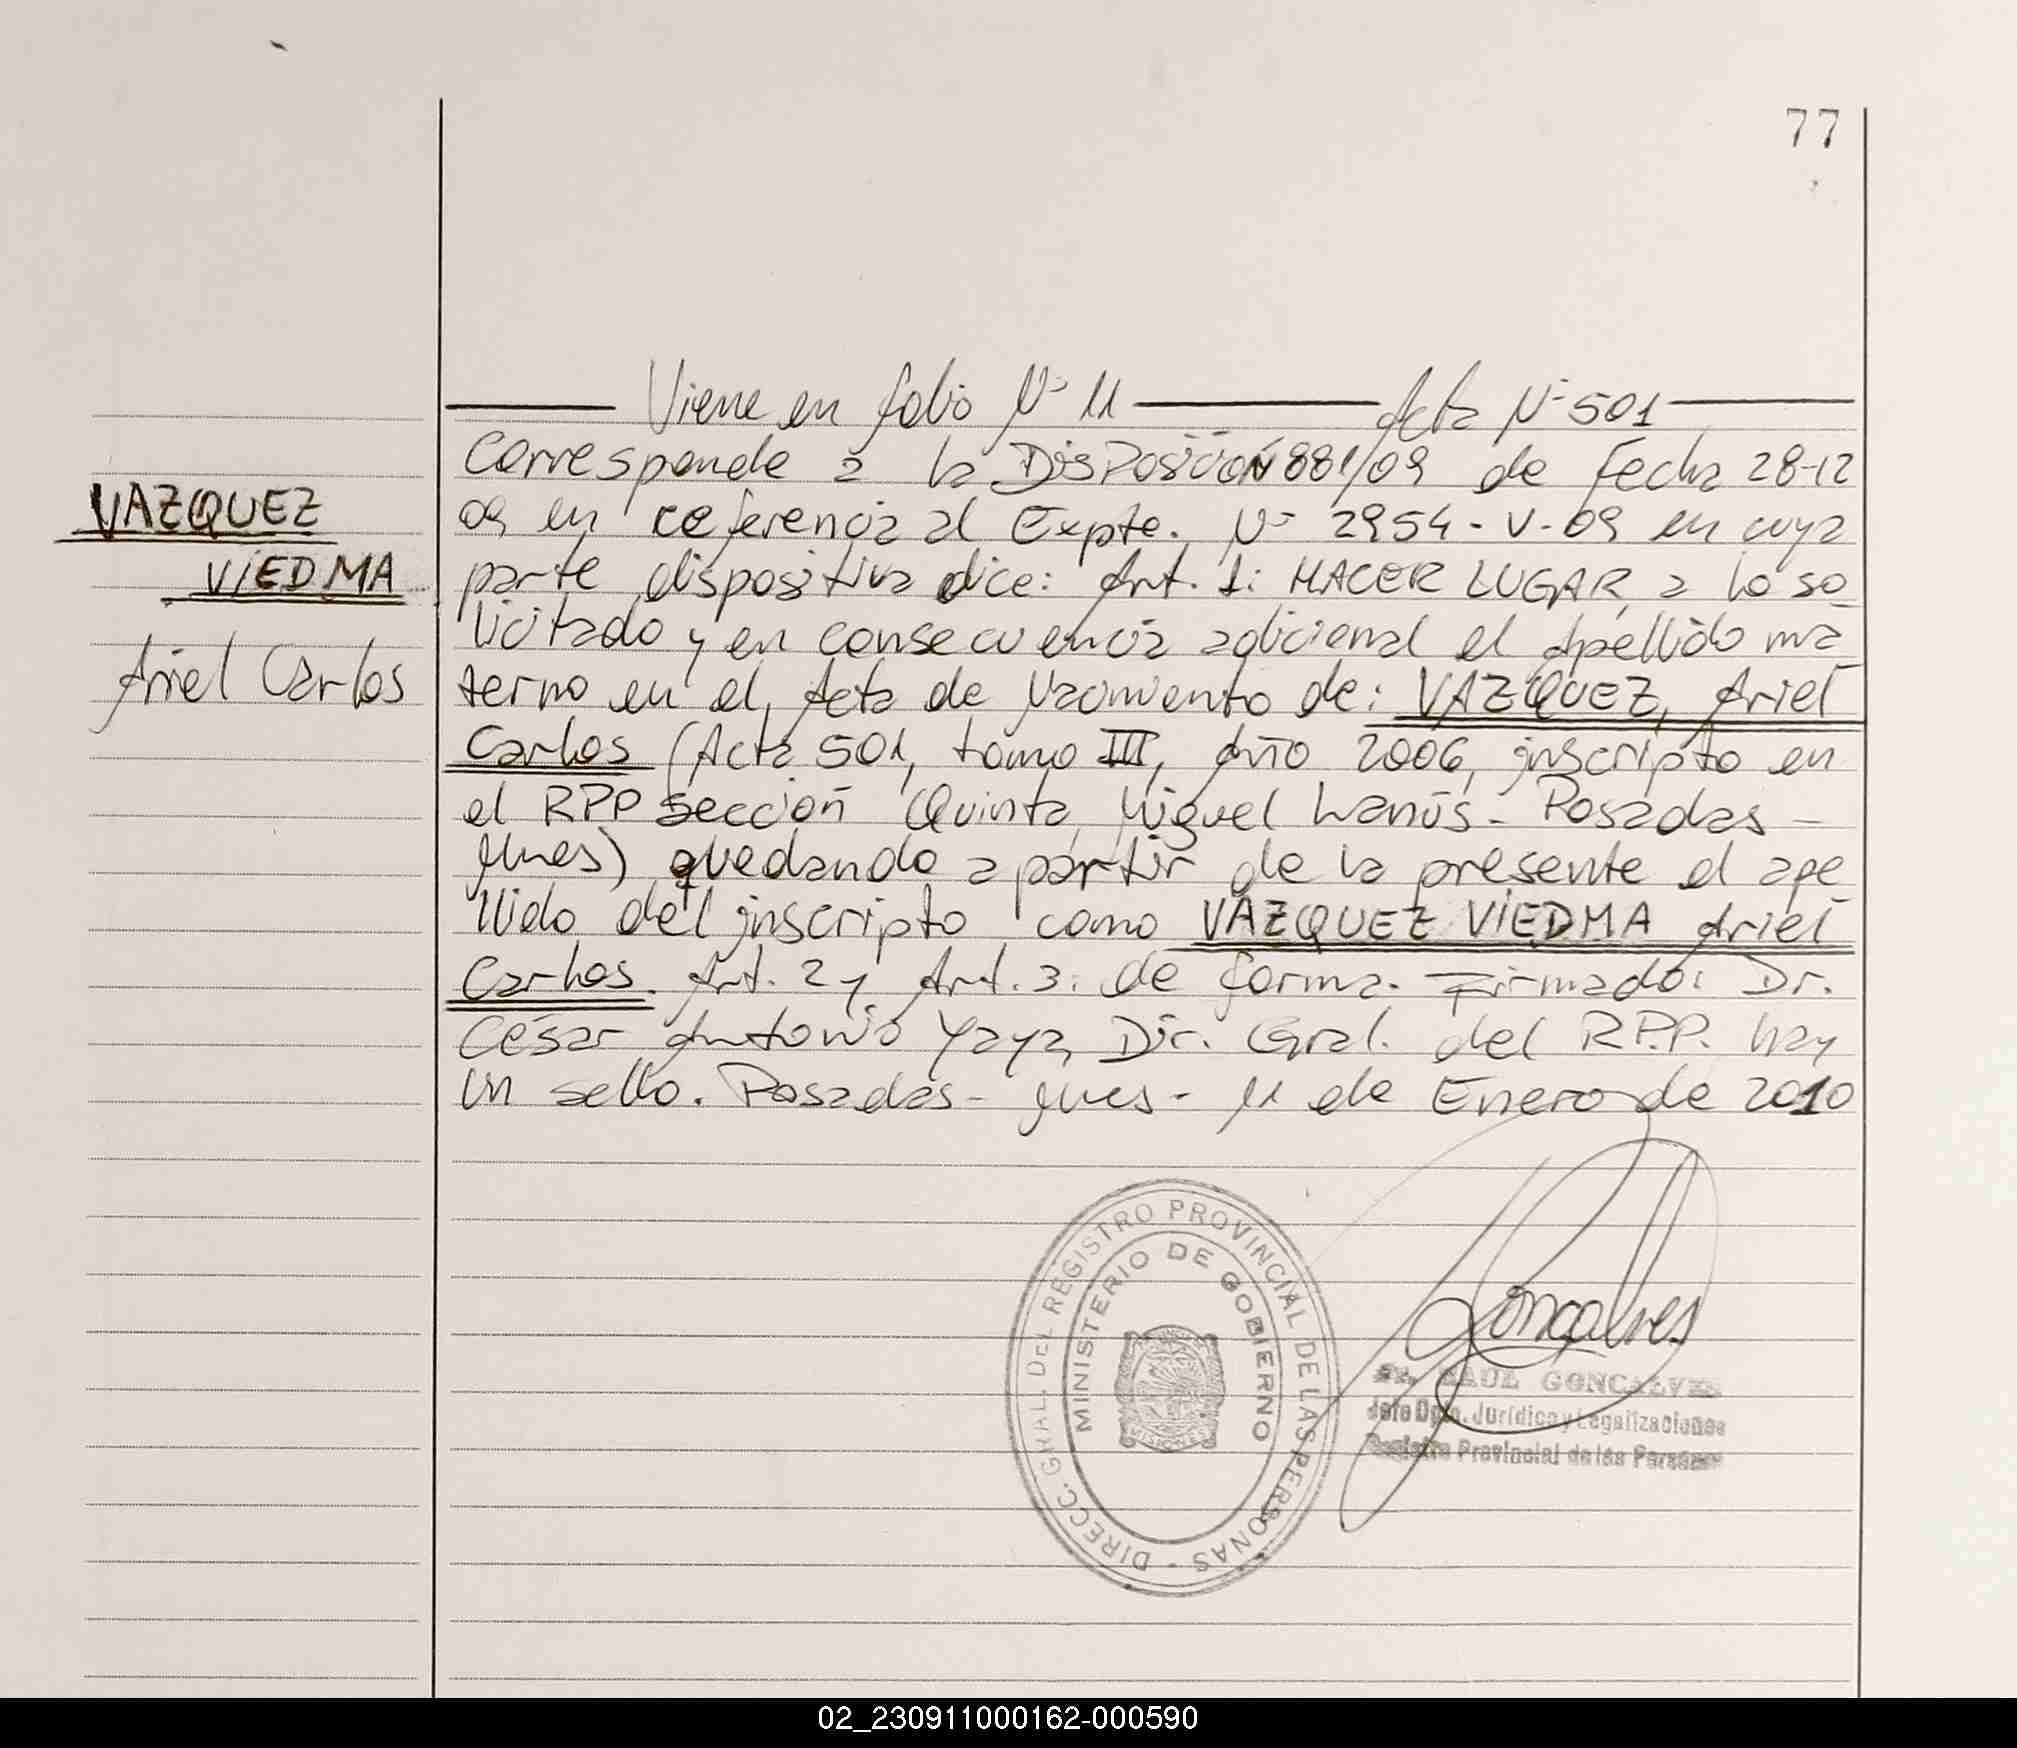 77
Viene en folio Nº 11 Acta Nº 501
VAZQUEZ
VIEDMA
Ariel Carlos
Corresponde a la DISPOSICIÓN 881/09 de fecha 28-12
09 en referencia al Expte. Nº 2954-V-09 en cuya
parte dispositiva dice: Art. 1: HACER LUGAR, a lo so
licitado y en consecuencia adicional el Apellido ma
terno en el Acta de Nacimiento de: VAZQUEZ, Ariel
Carlos (Acta 501, tomo III, Año 2006, inscripto en
el RPP sección Quinta, Miguel Lanús - Posadas -
Mnes) quedando a partir de la presente el ape
llido del inscripto como VAZQUEZ VIEDMA Ariel
Carlos. Art. 2 y Art. 3: de forma. Firmado: Dr.
César Antonio Yaya, Dir. Gral. del R.P.P. hay
un sello. Posadas - Mnes - 11 de Enero de 2010
DIRECC. GRAL. DEL REGISTRO PROVINCIAL DE LAS PERSONAS -
MINISTERIO DE GOBIERNO
MISIONES
Goncalves
Dr. RAUL GONCALVES
Jefe Dpto. Jurídico y Legalizaciones
Registro Provincial de las Personas
02_230911000162-000590